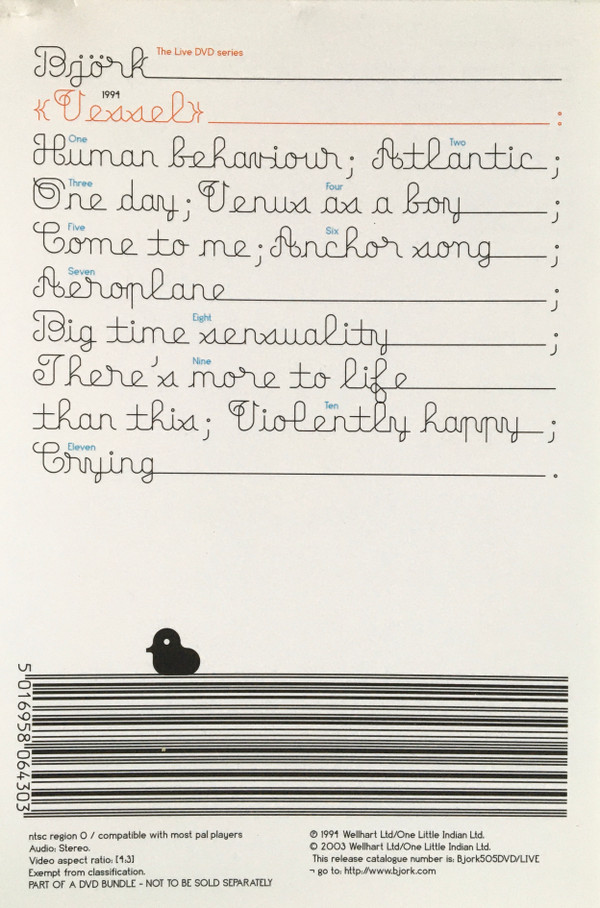 Björk The Live DVD series
1994
«Vessel» :
One Two
Human behaviour; Atlantic ;
Three Four
One day; Venus as a boy ;
Five Six
Come to me; Anchor song ;
Seven
Aeroplane ;
Eight
Big time sensuality ;
Nine
There's more to life
Ten
than this; Violently happy ;
Eleven
Crying .
5 016958 064303
ntsc region 0 / compatible with most pal players
Audio: Stereo.
Video aspect ratio: [4:3]
Exempt from classification.
PART OF A DVD BUNDLE - NOT TO BE SOLD SEPARATELY
℗ 1994 Wellhart Ltd/One Little Indian Ltd.
© 2003 Wellhart Ltd/One Little Indian Ltd.
This release catalogue number is: Bjork505DVD/LIVE
¬ go to: http://www.bjork.com